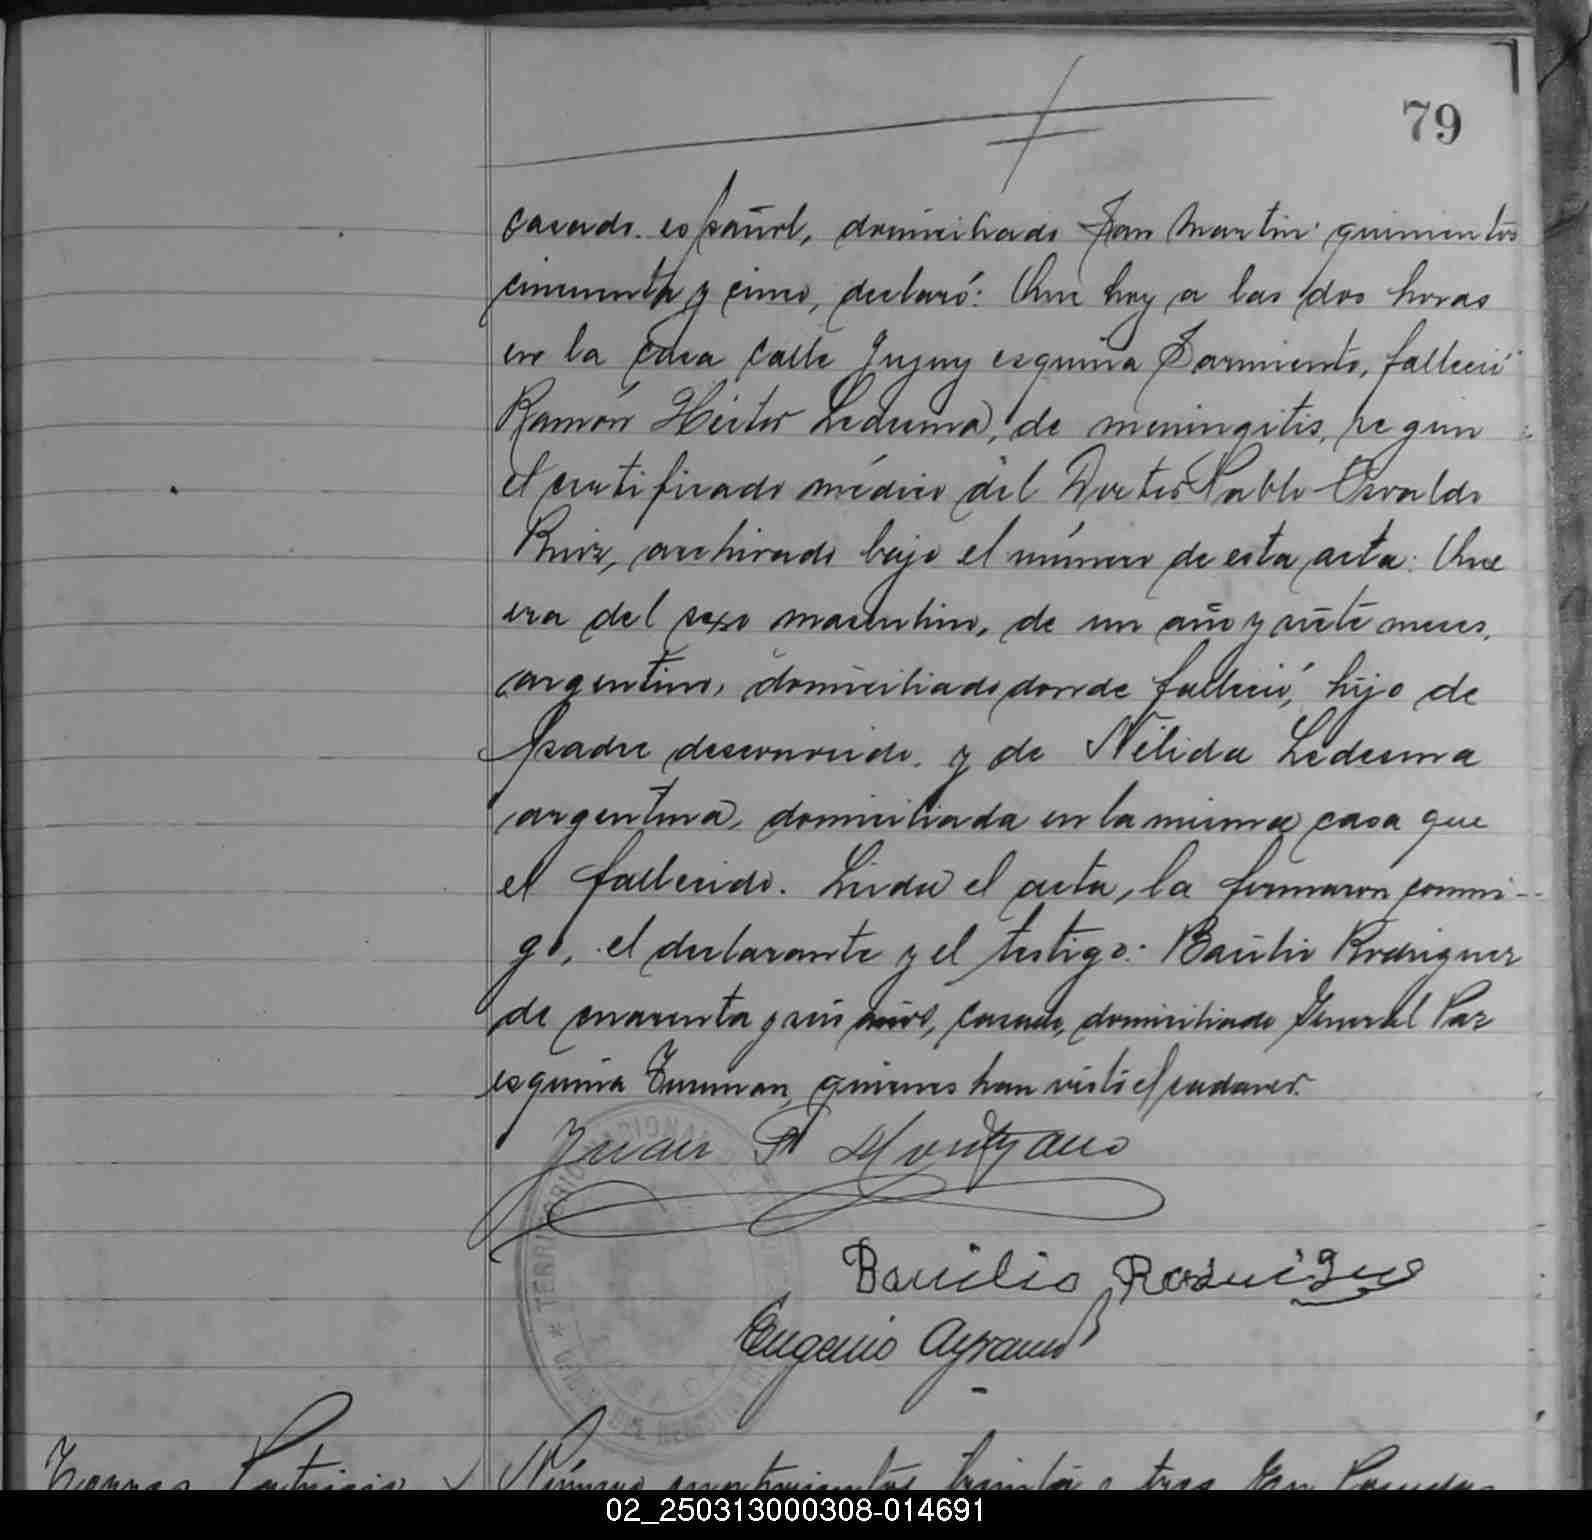 79
casado. español, domiciliado San Martin quinientos
cincuenta y cinco, declaró: Que hoy a las dos horas
en la casa calle Jujuy esquina Sarmiento, falleció
Ramón Héctor Ledesma, de meningitis, segun
el certificado médico del Doctor Pablo Osvaldo
Ruiz, archivado bajo el número de esta acta: Que
era del sexo masculino, de un año y siete meses,
argentino, domiciliado donde falleció, hijo de
padre desconocido. y de Nélida Ledesma
argentina, domiciliada en la misma casa que
el fallecido. Leida el acta, la firmaron conmi-
go, el declarante y el testigo: Basilio Rodriguez
de cuarenta y seis años, casado, domiciliado General Paz
esquina Tucuman, quienes han visto el cadaver.
Juan
Basilio Rodriguez
Eugenio
TERRITORIO NACIONAL
Torres Patricio
Número cuatrocientos treinta y tres En Posadas
02_250313000308-014691